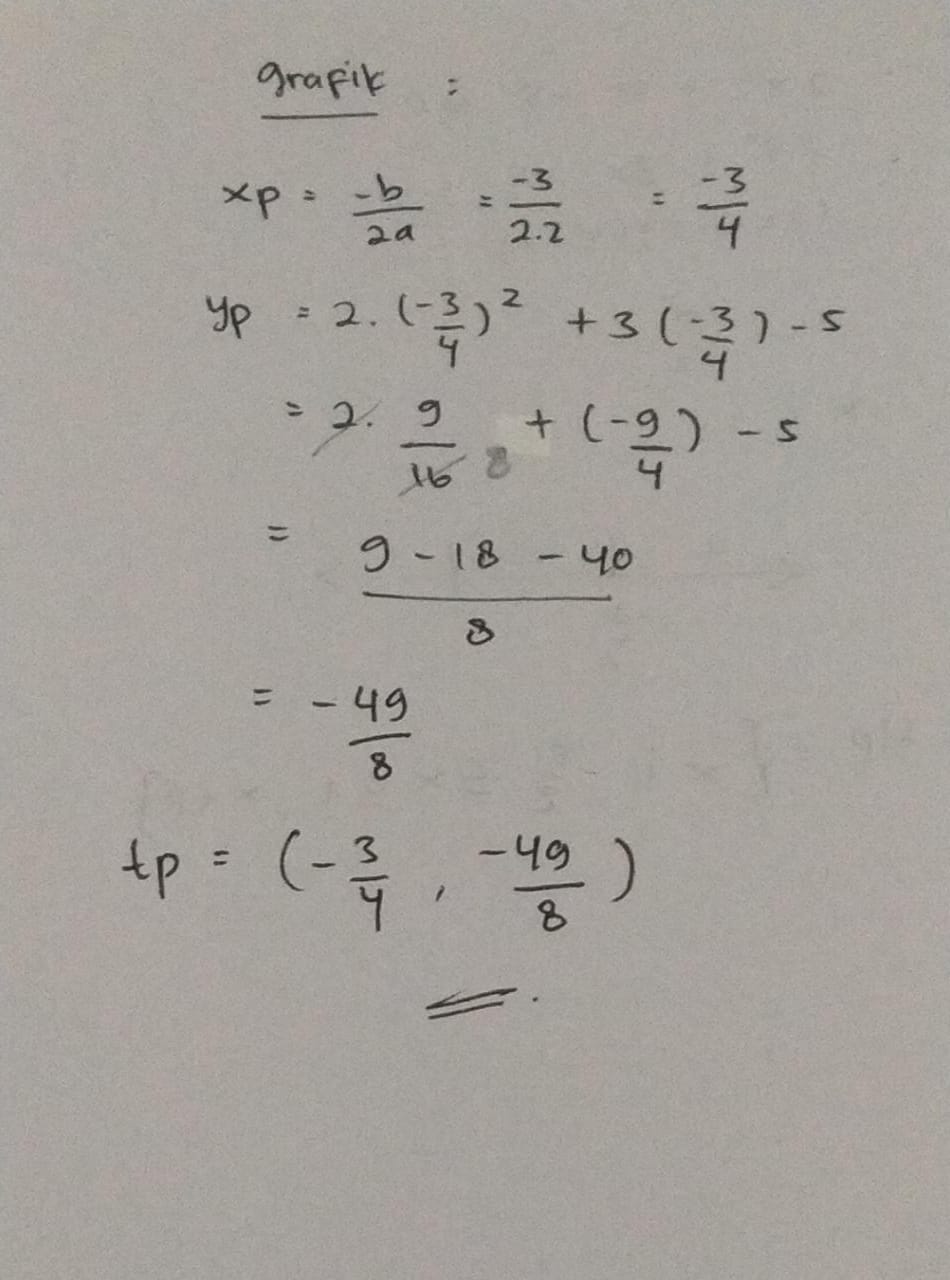 grafik :
xp = -b/2a = -3/2.2 = -3/4
yp = 2. (-3/4)² + 3 (-3/4) - 5
= 2. 9/16 8 + (-9/4) - 5
= 9 - 18 - 40/8
= - 49/8
tp = (- 3/4 , -49/8)